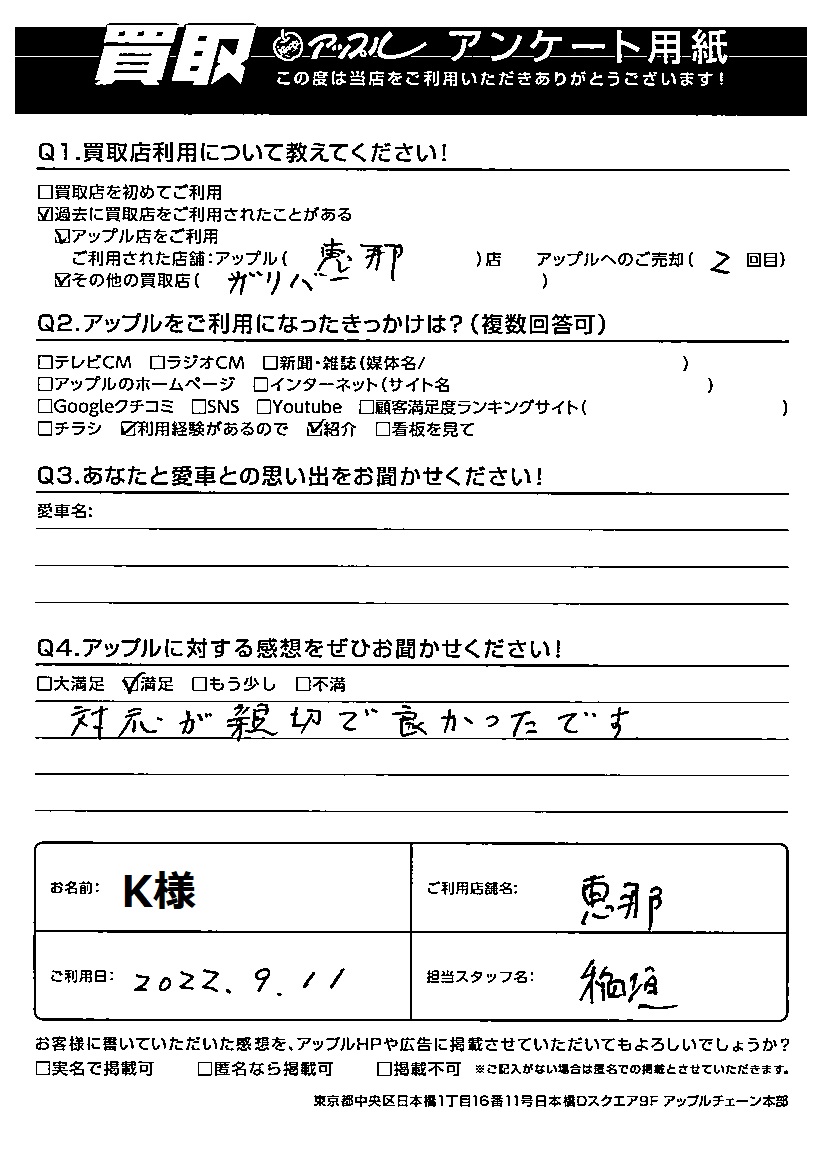 買取 アップル アンケート用紙
この度は当店をご利用いただきありがとうございます!
Q1.買取店利用について教えてください!
□買取店を初めてご利用
☑過去に買取店をご利用されたことがある
☑アップル店をご利用
ご利用された店舗:アップル( 恵那 )店 アップルへのご売却( 2 回目)
☑その他の買取店( ガリバー )
Q2.アップルをご利用になったきっかけは?(複数回答可)
□テレビCM □ラジオCM □新聞・雑誌(媒体名/ )
□アップルのホームページ □インターネット(サイト名 )
□Googleクチコミ □SNS □Youtube □顧客満足度ランキングサイト( )
□チラシ ☑利用経験があるので ☑紹介 □看板を見て
Q3.あなたと愛車との思い出をお聞かせください!
愛車名:
Q4.アップルに対する感想をぜひお聞かせください!
□大満足 ☑満足 □もう少し □不満
対応が親切で良かったです
お名前: K様 ご利用店舗名: 恵那
ご利用日: 2022.9.11 担当スタッフ名: 稲垣
お客様に書いていただいた感想を、アップルHPや広告に掲載させていただいてもよろしいでしょうか?
□実名で掲載可 □匿名なら掲載可 □掲載不可 ※ご記入がない場合は匿名での掲載とさせていただきます。
東京都中央区日本橋1丁目16番11号日本橋Dスクエア9F アップルチェーン本部